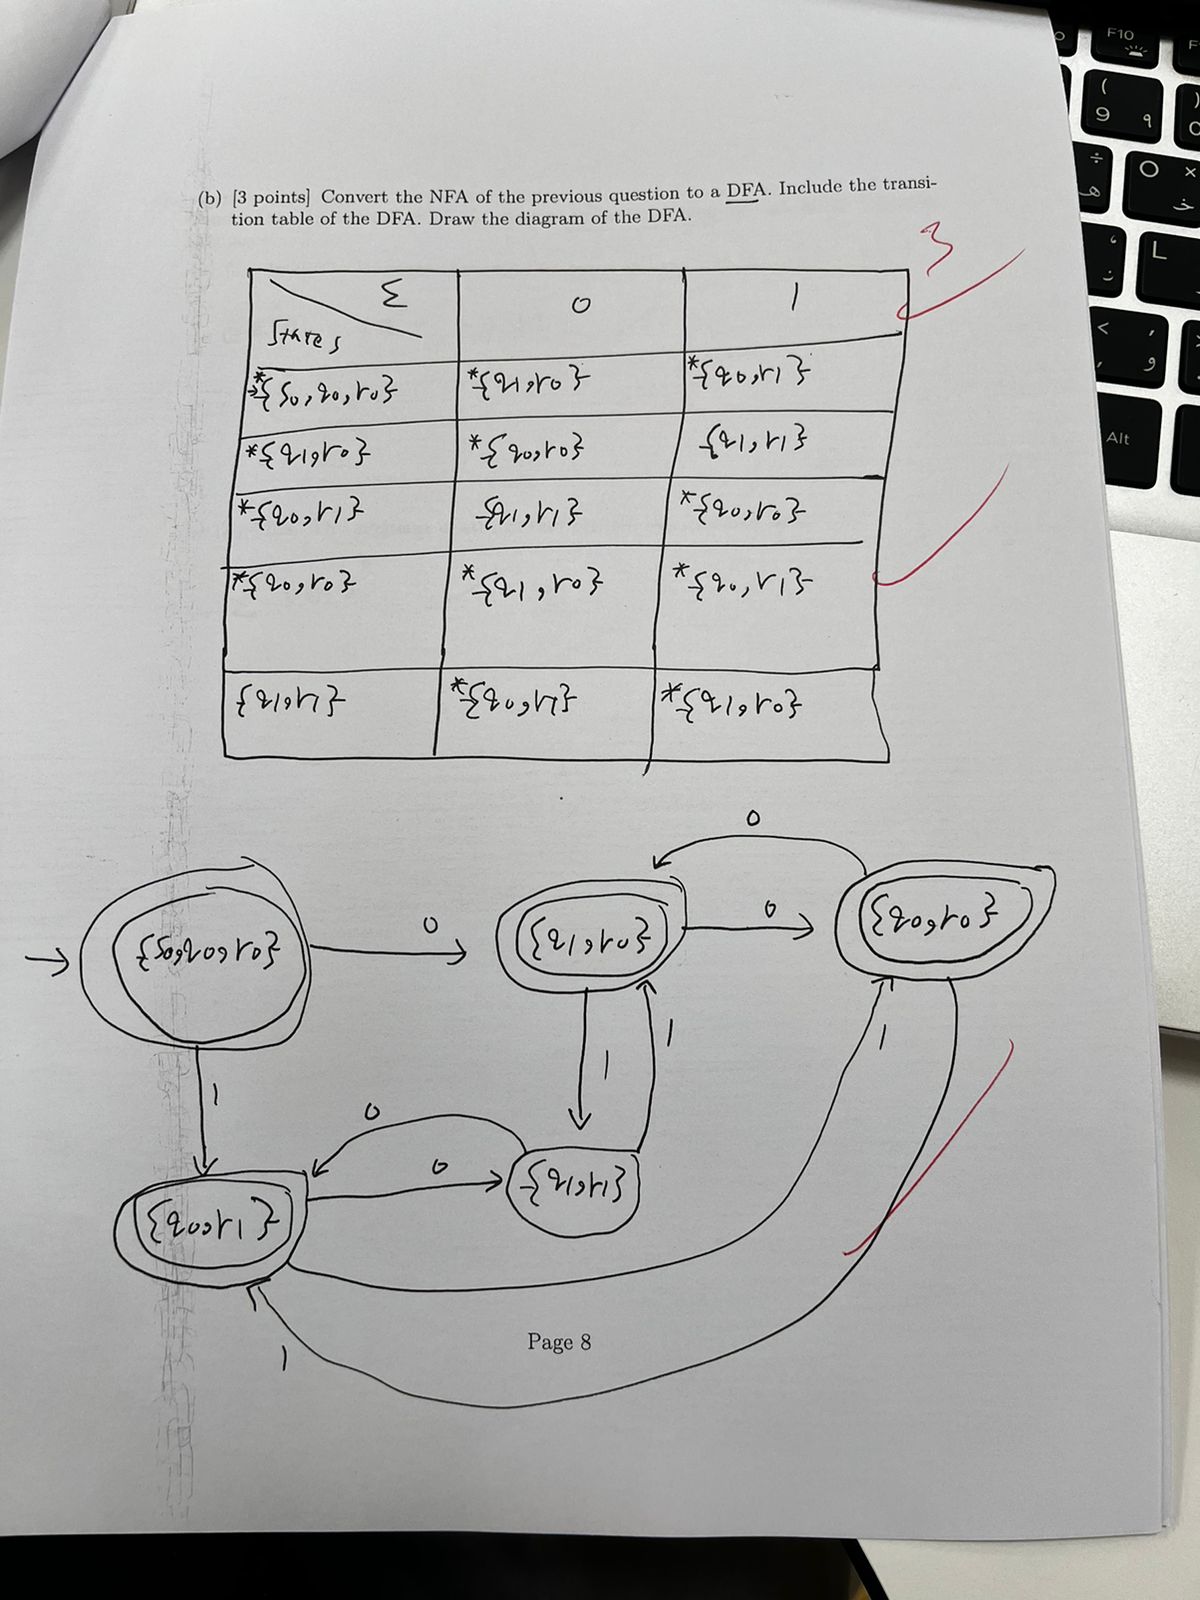 (b) [3 points] Convert the NFA of the previous question to a DFA. Include the transi-
tion table of the DFA. Draw the diagram of the DFA.
3
Σ
States
0
1
*→{s0,q0,r0} *{q1,r0} *{q0,r1}
*{q1,r0} *{q0,r0} {q1,r1}
*{q0,r1} {q1,r1} *{q0,r0}
*{q0,r0} *{q1,r0} *{q0,r1}
{q1,r1} *{q0,r1} *{q1,r0}
0
{s0,q0,r0} 0 {q1,r0} 0 {q0,r0}
1 1 1 1
0
0
{q0,r1} {q1,r1}
1
Page 8
F10
( 9 ٩
)
÷
O ×
خ
L
<
,
و
Alt